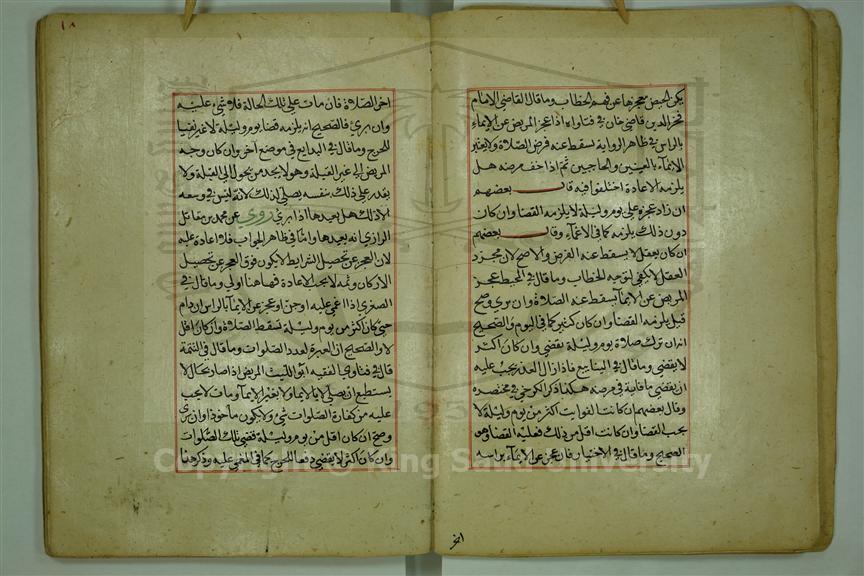 يكن المحض معجزها عن فهم الخطاب وما قال القاضي الامام
فخر الدين قاضي خان في فتاواه اذا عجز المريض عن الايماء
بالراس في ظاهر الرواية يسقط عنه فرض الصلاة ولا يعتبر
الايماء بالعينين والحاجبين ثم اذا خف مرضه هل
يلزمه الاعادة اختلفوا فيه قال بعضهم
ان زاد عجزه على يوم وليلة لا يلزمه القضا وان كان
دون ذلك يلزمه كما في الاغماء وقال بعضهم
ان كان يعقل لا يسقط عنه الفرض والاصح لان مجرد
العقل لا يكفي لتوجه الخطاب وما قال في المحيط عجز
المريض عن الايماء يسقط عنه الصلاة وان بري وصح
قيل يلزمه القضا وان كان كثير كما في النوم والصحيح
انه ان ترك صلاة يوم وليلة يقضي وان كان اكثر
لا يقضي وما قال في الينابيع فاذا زال العذر يجب عليه
ان يقضي ما فاته في مرضه هكذا ذكر الكرخي في مختصره
وقال بعضهم ان كانت الفوايت اكثر من يوم وليلة لا
يجب القضا وان كانت اقل من ذلك فعليه القضا وهو
الصحيح وما قال في الاختيار فان عجز عن الايماء براسه
اخر
١٨
اخر الصلاة فان مات على تلك الحالة فلا شيء عليه
وان بري فالصحيح انه يلزمه قضا يوم وليلة لا غير نفيا
للحرج وما قال في البدايع في موضع اخر وان كان وجه
المريض الى غير القبلة وهو لا يجد من يحول الى القبلة ولا
يقدر على ذلك بنفسه يصلي كذلك لانه ليس في وسعه
الا ذلك هل يعيدها اذا بري روي عن محمد بن مقاتل
الرازي انه يعيدها واما في ظاهر الجواب فلا اعادة عليه
لان العجز عن تحصيل الشرايط لا يكون فوق العجز عن تحصيل
الاركان وثمه لا يجب الاعادة فهاهنا اولى وما قال في
الصغرى اذا اغمي عليه او جن او عجز عن الايماء بالراس ان دام
حتى كان اكثر من يوم وليلة تسقط الصلاة وان كان اقل
لا والصحيح ان العبرة لعدد الصلوات وما قال في التتمة
قال في فتاوي الفقيه ابو الليث المريض اذا صار بحال لا
يستطيع ان يصلي لا بالايماء ولا بغير الايماء ومات لا يجب
عليه من كفارة الصلوات شي ولا يكون ماخوذا وان بري
وصح ان كان اقل من يوم وليلة فيقضي تلك الصلوات
وان كان اكثر لا يقضي دفعا للحرج كما في المغمى عليه وذكر هنا
Copyright © King Saud University